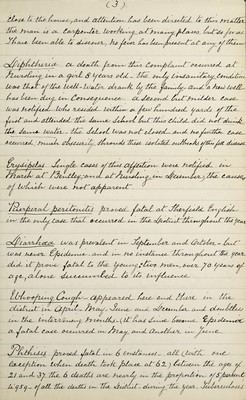 (3)
close to the house, and attention has been directed to this matter
the man is a carpenter working at many places but so far as
I have been able to discover, no fever has been present at any of them
Diphtheria a death from this complaint occurred at
Nursling in a girl 8 years old - the only insanitary condition
was that of the well-water drank by the family and a new well
has been dug in consequence. a second but milder case
was notified who resided within a few hundred yards of the
first and attended the same School but this child did not drink
the same water - the School was not closed and no further case
occurred, much obscurity shrouds these isolated outbreaks of this fell disease
Erysipelas Single cases of this affection were notified in
March at Bentley, and at Nursling in December, the causes
of which were not apparent
Puerperal peritonitis proved fatal at Sherfield English
in the only case that occurred in the District throughout the year
Diarrhœa was prevalent in September and October - but
was never Epidemic and in no instance throughout the year
did it prove fatal to the young, two men, over 70 years of
age, alone succumbed to its influence
Whooping Cough - appeared here and there in the
district in April - May, June and December and doubtless
in the intervening months, it has since become Epidemic
a fatal case occurred in May and another in June
Phthisis proved fatal in 6 instances - all (with one
exception when death took place at 62) between the ages of
21 and 37. the 6 deaths are nearly in the proportion of 5 percent
of all the deaths in the District during the year. Tuberculosis